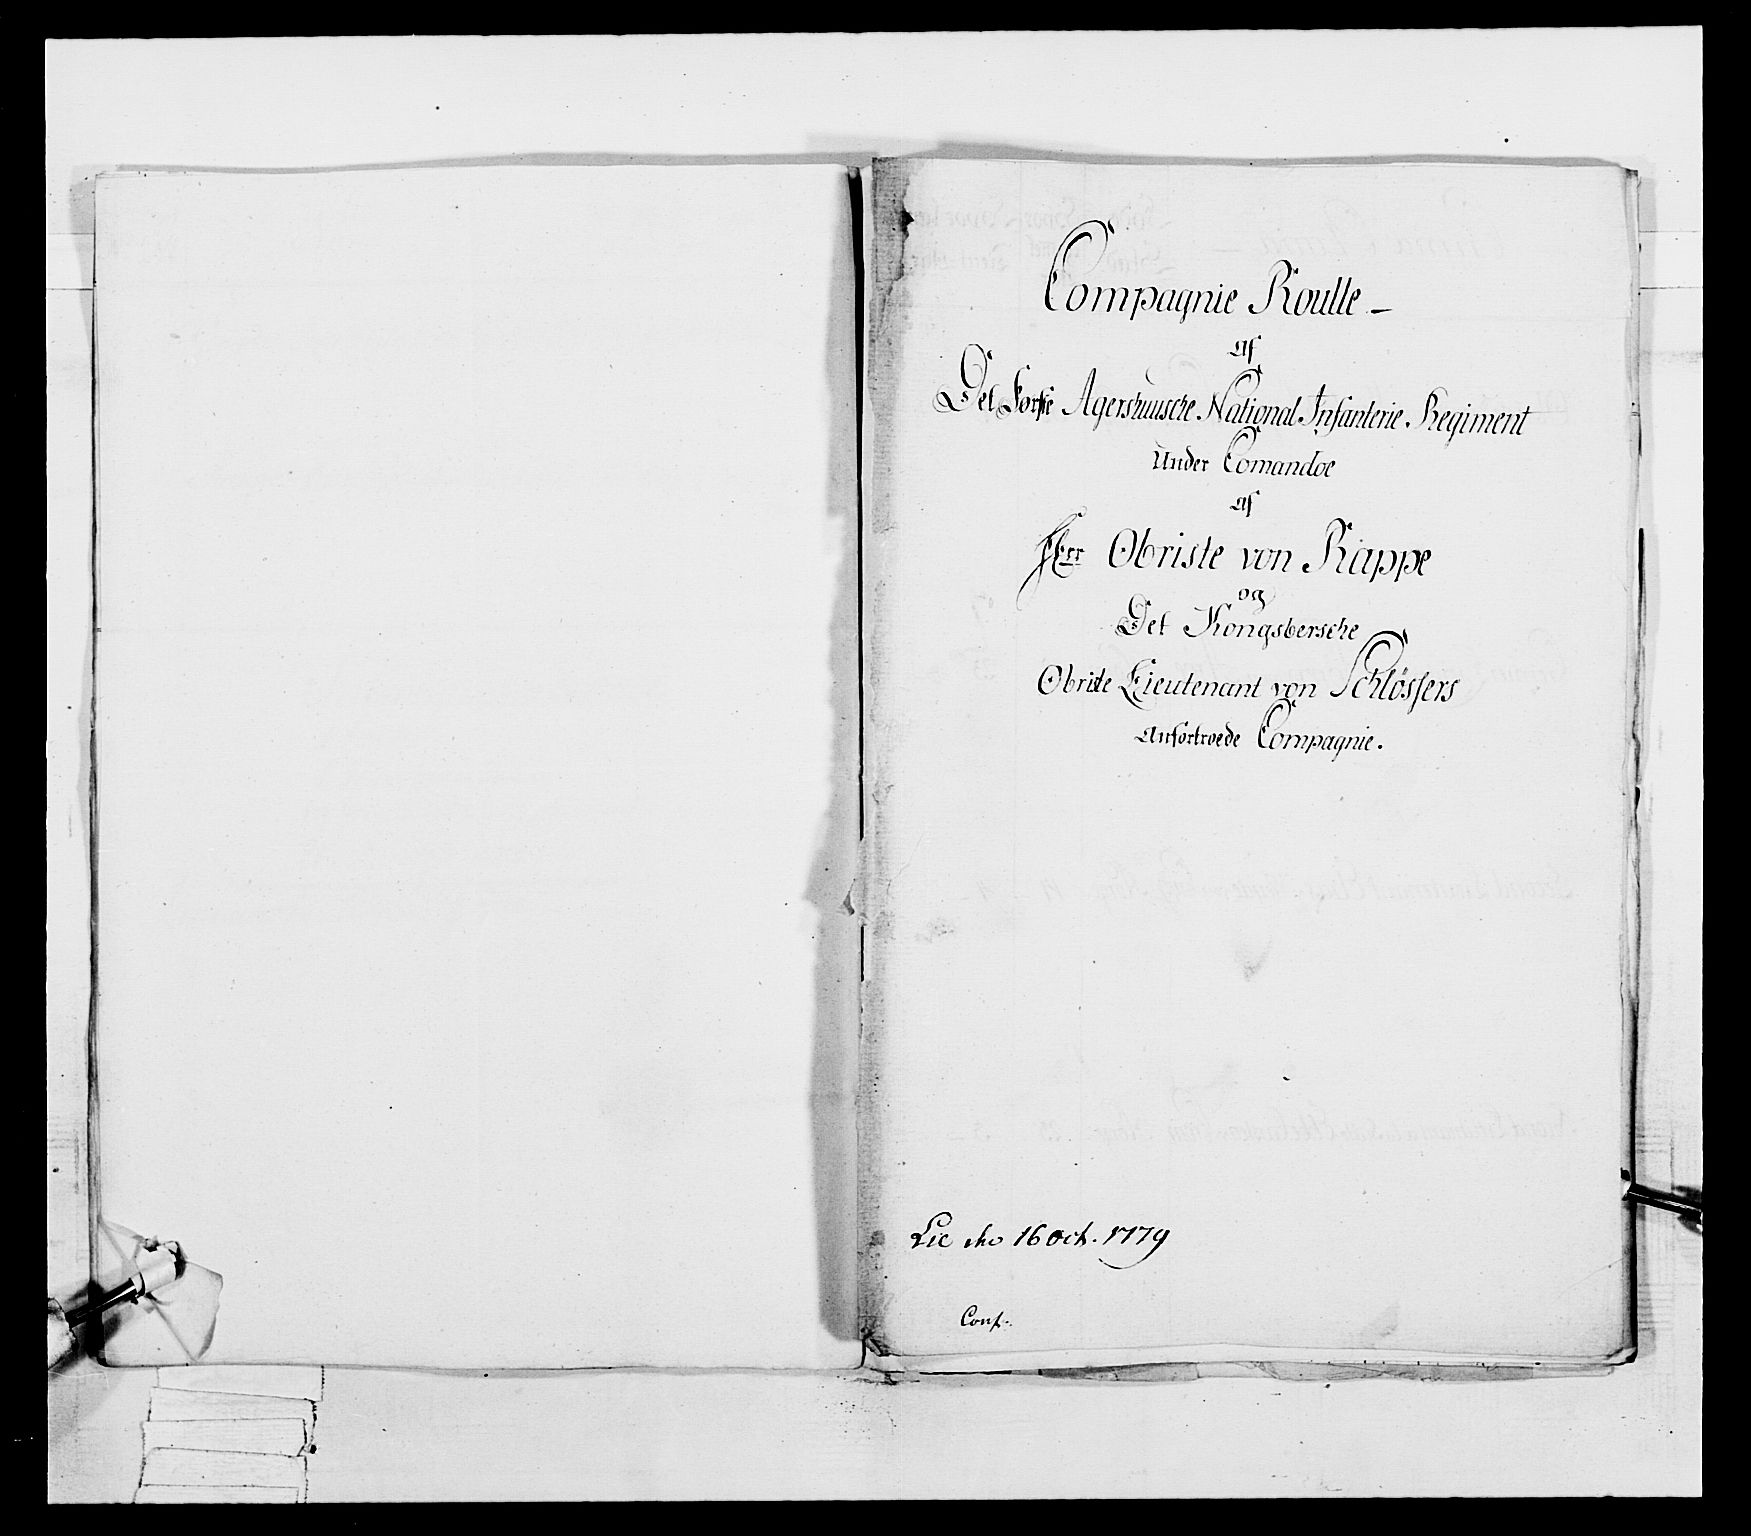 Compagnie Roulle -
Af
Det Første Agershuusche National Infanterie Regiment
Under Comandoe
af
Herr Obriste von Rappe
og
Det Kongsbersche
Obriste Lieutenant von Schlössers
Anfortroede Compagnie.
Lic dno 16 Oct. 1779
Conf.